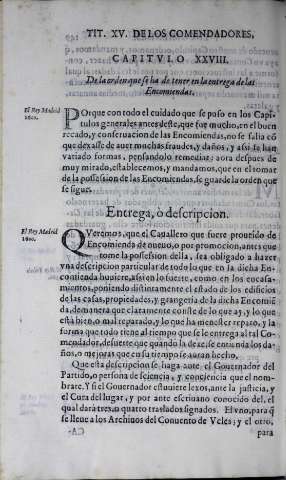 TIT. XV. DE LOS COMENDADORES,
CAPITVLO XXVIII.
De la orden que se ha de tener en la entrega de las
Encomiendas.
El Rey Madrid
1600.
POrque con todo el cuidado que se puso en los Capi
tulos generales antes deste, que fue mucho, en el buen
recado, y conseruacion de las Encomiendas, no se falia cō
que dexasse de auer muchas fraudes, y daños, y assi se han
variado formas, pensandolo remediar; aora despues de
muy mirado, establecemos, y mandamos, que en el tomar
de la possession de las Encomiendas, se guarde la orden que
se sigue.
Entrega, ò descripcion.
El Rey Madrid
1600.
QVeremos, que el Cauallero que fuere proueido de
Encomienda de nueuo, o por promocion, antes que
tome la possession della, sea obligado a hazer
vna descripcion particular de todo lo que en la dicha En
comienda huuiere, assi en lo fuerte, como en los encasa-
mientos, poniendo distintamente el estado de los edificios
de las casas, propiedades, y grangeria de la dicha Encomiē
da, de manera que claramente conste de lo que ay, y lo que
està bien, o mal reparado, y lo que ha menester reparo, y la
forma que todo tiene al tiempo que se le entrega al tal Co-
mendador, de suerte que quando la dexe, se entienda los da
ños, o mejoras que en su tiempo se auran hecho.
Que esta descripcion se haga ante el Gouernador del
Partido, o persona de sciencia, y conciencia que el nom-
brare. Y si el Gouernador estuuiere lexos, ante la justicia, y
el Cura del lugar, y por ante escriuano conocido del, el
qual darà tres, o quatro traslados signados. El vno, para q̄
se lleue a los Archiuos del Conuento de Vcles; y el otro,
para